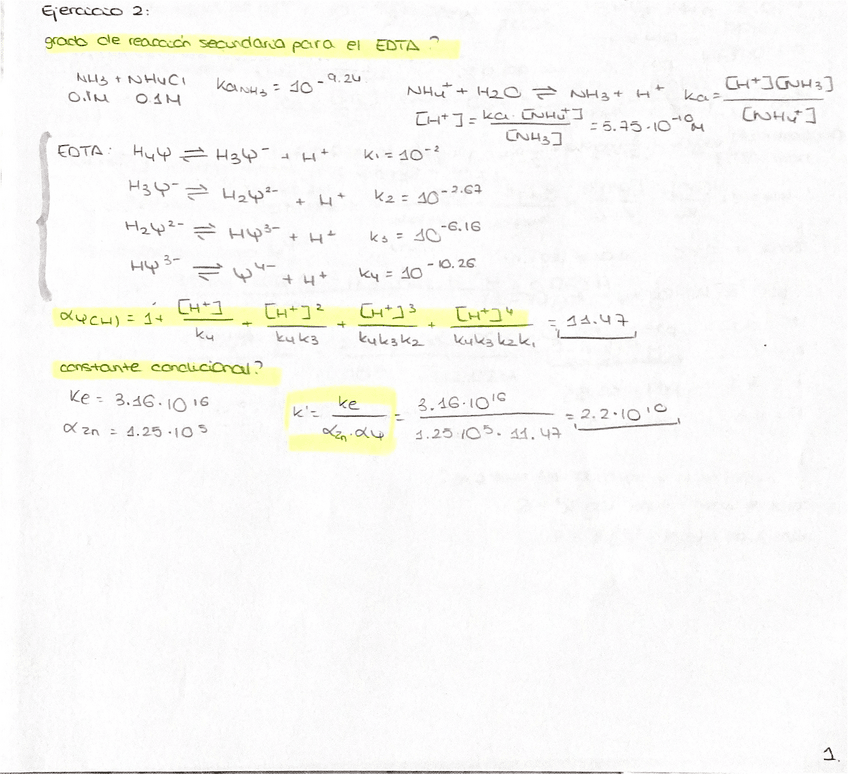 Ejercicio 2:
grado de reacción secundaria para el EDTA?
NH3 + NH4Cl    KaNH3 = 10^-9.24    NH4+ + H2O ⇌ NH3 + H+    Ka = [H+][NH3] / [NH4+]
0.1M    0.1M    [H+] = Ka · [NH4+] / [NH3] = 5.75·10^-10 M
EDTA: H4Y ⇌ H3Y- + H+    K1 = 10^-2
H3Y- ⇌ H2Y2- + H+    K2 = 10^-2.67
H2Y2- ⇌ HY3- + H+    K3 = 10^-6.16
HY3- ⇌ Y4- + H+    K4 = 10^-10.26
αY(H) = 1 + [H+]/K4 + [H+]^2/K4K3 + [H+]^3/K4K3K2 + [H+]^4/K4K3K2K1 = 11.47
constante condicional?
Ke = 3.16·10^16    K' = Ke / αZn·αY = 3.16·10^16 / 1.25·10^5 · 11.47 = 2.2·10^10
αZn = 1.25·10^5
1.